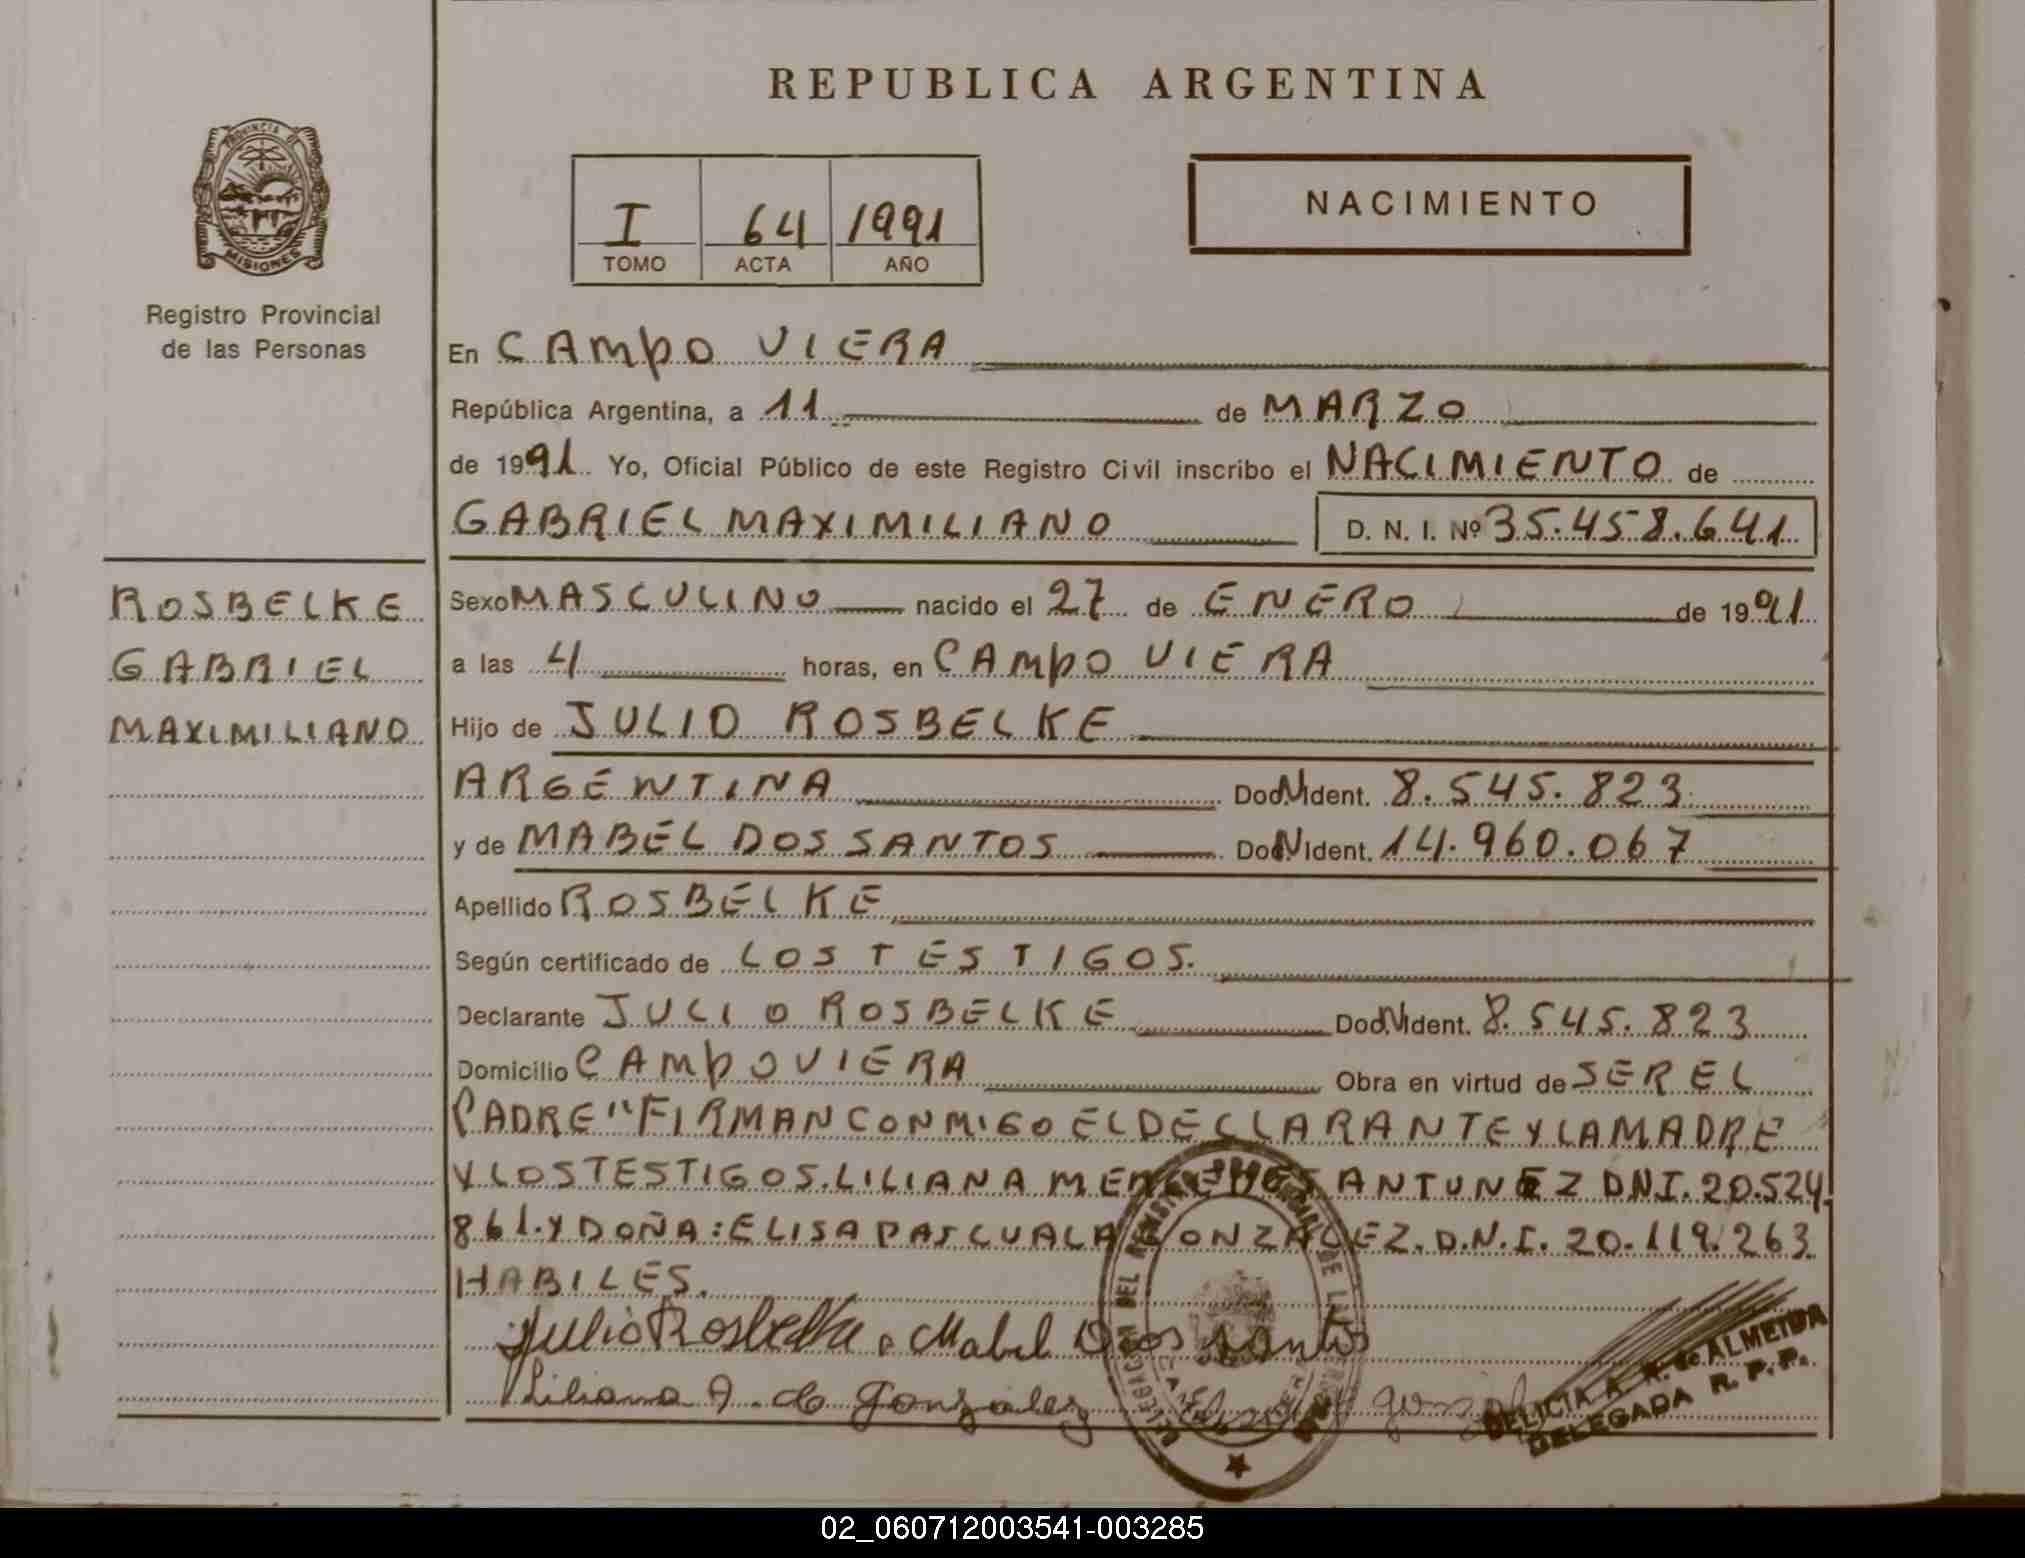 REPUBLICA ARGENTINA
PROVINCIA DE
MISIONES
Registro Provincial
de las Personas
I 64 1991
TOMO ACTA AÑO
NACIMIENTO
En CAMPO VIERA
República Argentina, a 11 de MARZO
de 1991. Yo, Oficial Público de este Registro Civil inscribo el NACIMIENTO de
GABRIEL MAXIMILIANO D. N. I. Nº 35.458.641
ROSBELKE
GABRIEL
MAXIMILIANO
Sexo MASCULINO nacido el 27 de ENERO de 1991
a las 4 horas, en CAMPO VIERA
Hijo de JULIO ROSBELKE
ARGENTINA Doc. N Ident. 8.545.823
y de MABEL DOS SANTOS Doc. N Ident. 14.960.067
Apellido ROSBELKE
Según certificado de LOS TESTIGOS.
Declarante JULIO ROSBELKE Doc. N Ident. 8.545.823
Domicilio CAMPO VIERA Obra en virtud de SER EL
PADRE" FIRMAN CONMIGO EL DECLARANTE Y LA MADRE
Y LOS TESTIGOS. LILIANA ANTUNEZ DNI. 20.524.
861. Y DOÑA: ELISA PASCUALA GONZALEZ. D.N.I. 20.119.263
HABILES.
Julio Rosbelke. Mabel Dos Santos
Liliana A. de Gonzalez
DELICIA A. R. de ALMEIDA
DELEGADA R. P. P.
02_060712003541-003285